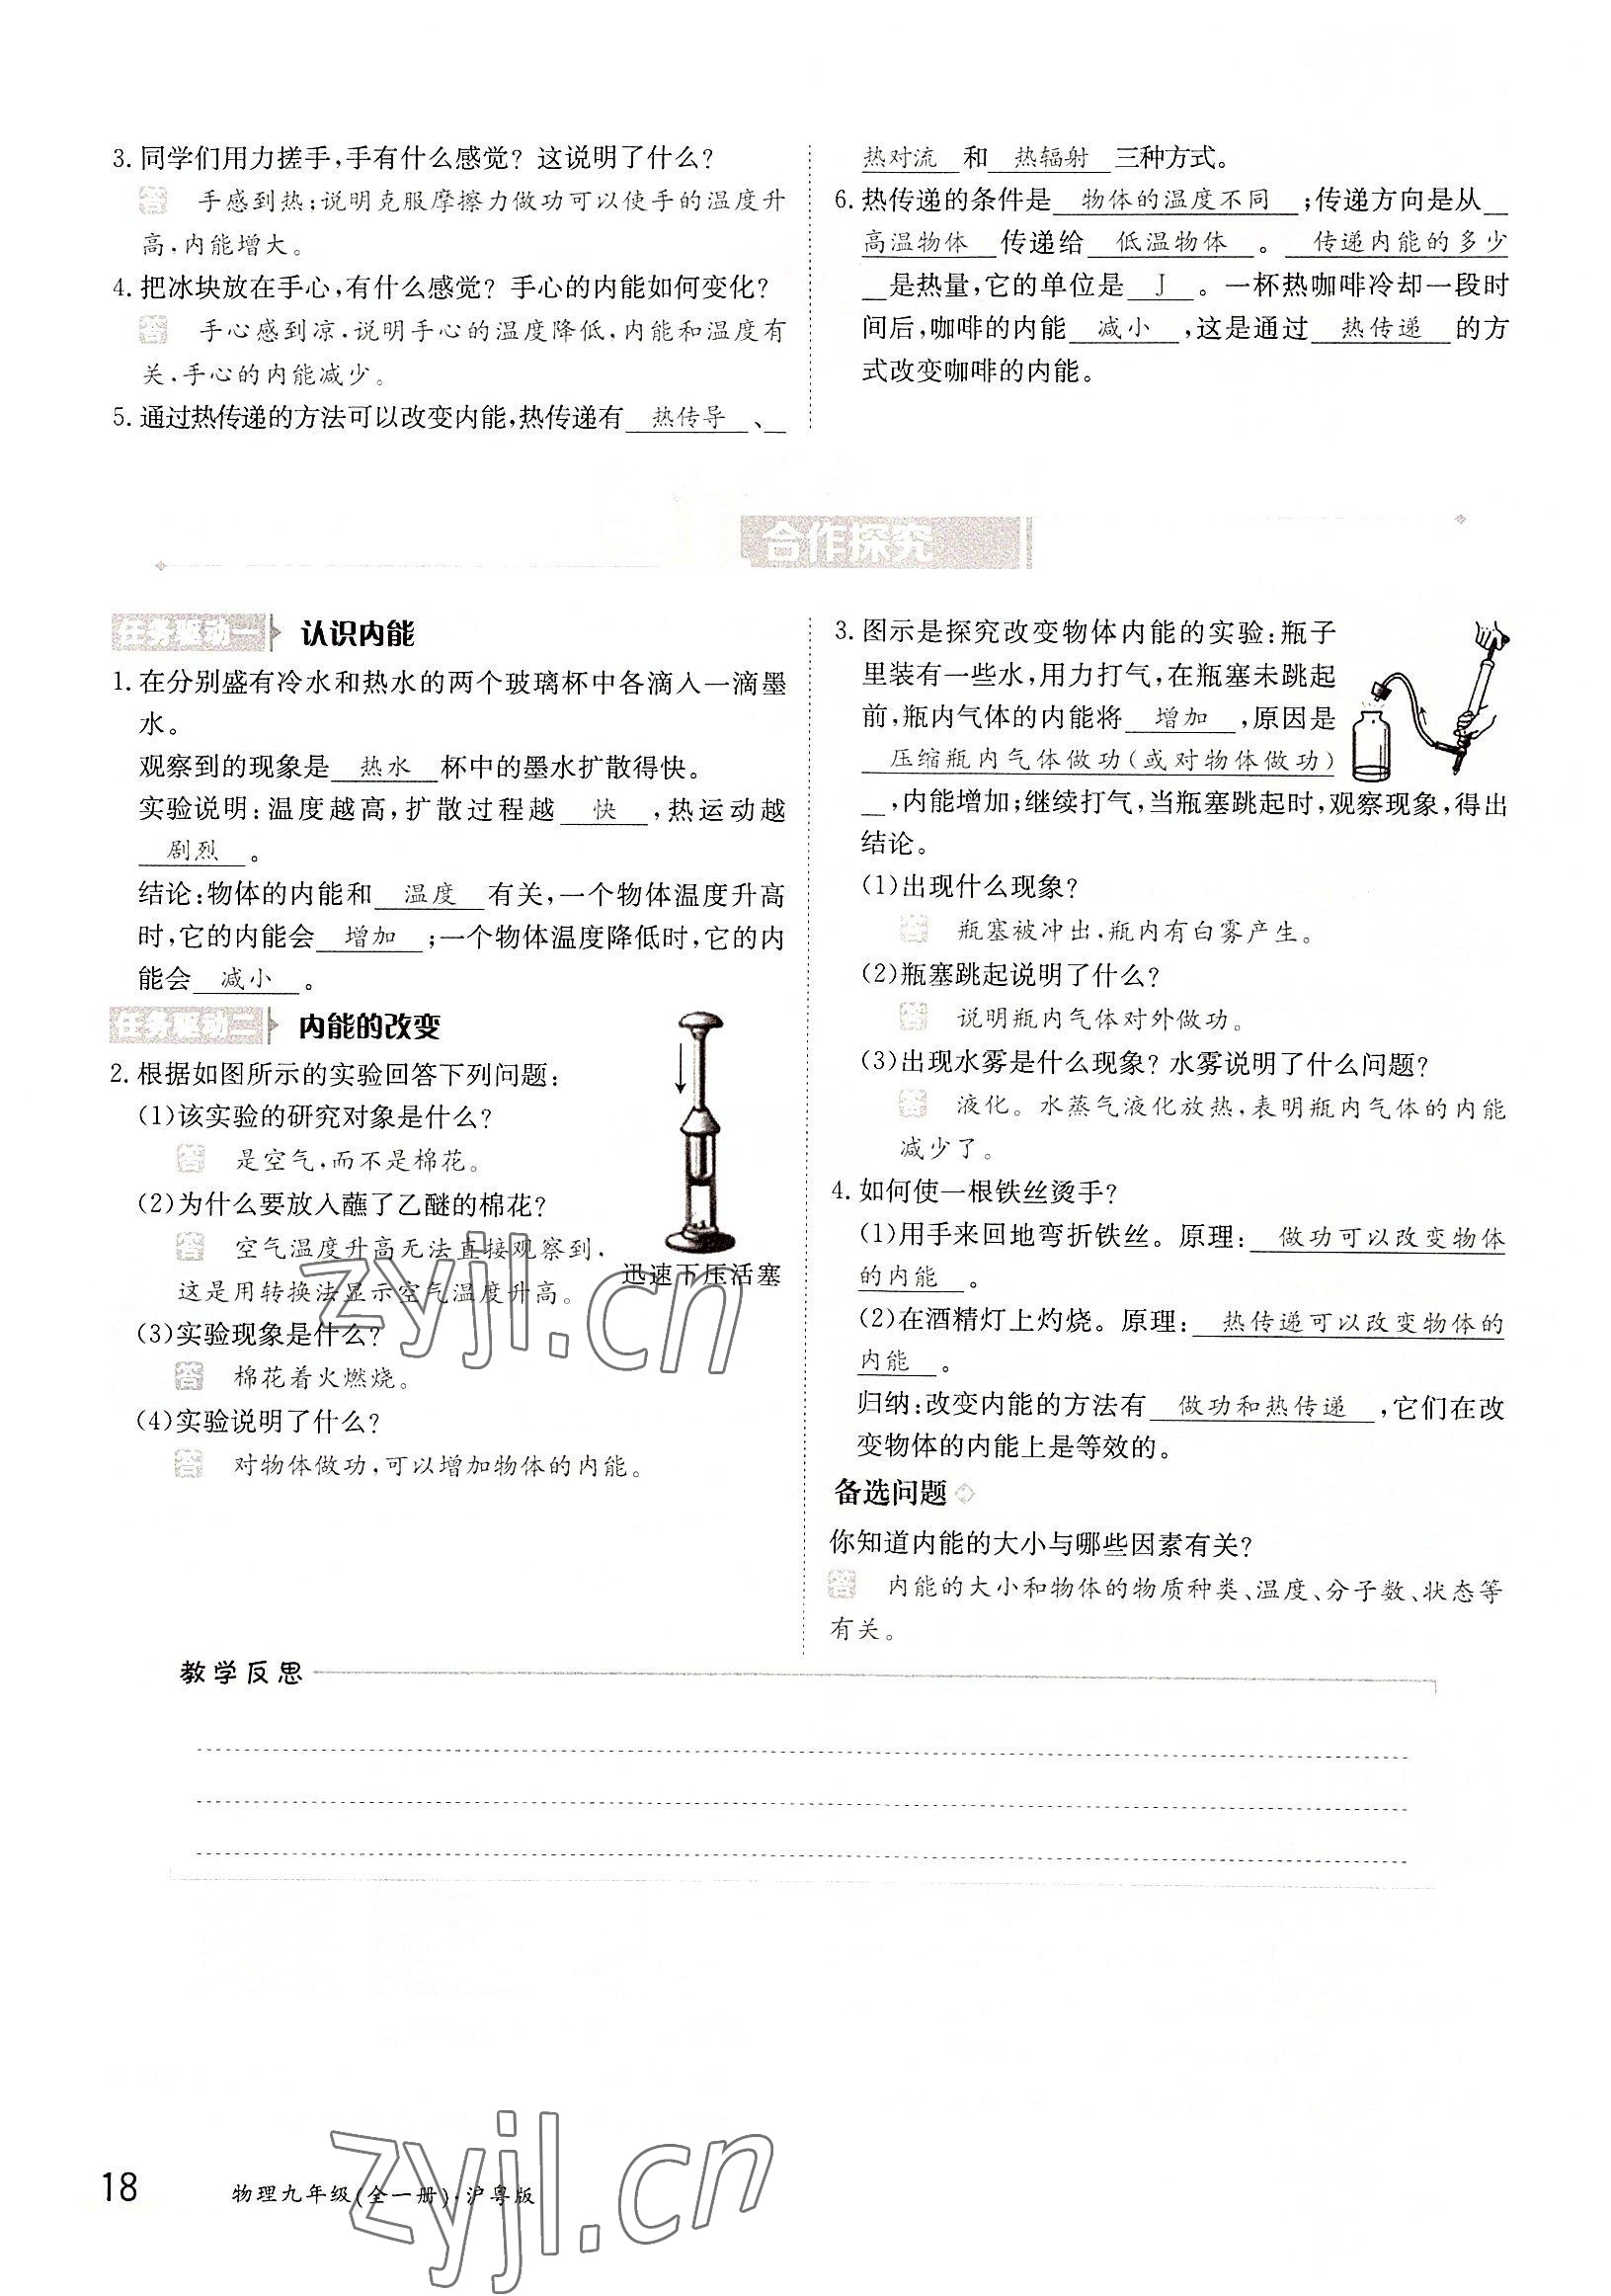 3. 同学们用力搓手,手有什么感觉? 这说明了什么?
答 手感到热;说明克服摩擦力做功可以使手的温度升
高,内能增大。
4. 把冰块放在手心,有什么感觉? 手心的内能如何变化?
答 手心感到凉,说明手心的温度降低,内能和温度有
关,手心的内能减少。
5. 通过热传递的方法可以改变内能,热传递有 热传导 、
热对流 和 热辐射 三种方式。
6. 热传递的条件是 物体的温度不同 ;传递方向是从
高温物体 传递给 低温物体 。 传递内能的多少
是热量,它的单位是 J 。一杯热咖啡冷却一段时
间后,咖啡的内能 减小 ,这是通过 热传递 的方
式改变咖啡的内能。
合作探究
任务驱动一 认识内能
1. 在分别盛有冷水和热水的两个玻璃杯中各滴入一滴墨
水。
观察到的现象是 热水 杯中的墨水扩散得快。
实验说明:温度越高,扩散过程越 快 ,热运动越
剧烈 。
结论:物体的内能和 温度 有关,一个物体温度升高
时,它的内能会 增加 ;一个物体温度降低时,它的内
能会 减小 。
任务驱动二 内能的改变
2. 根据如图所示的实验回答下列问题:
(1)该实验的研究对象是什么?
答 是空气,而不是棉花。
(2)为什么要放入蘸了乙醚的棉花?
答 空气温度升高无法直接观察到,
这是用转换法显示空气温度升高。
迅速下压活塞
(3)实验现象是什么?
答 棉花着火燃烧。
(4)实验说明了什么?
答 对物体做功,可以增加物体的内能。
3. 图示是探究改变物体内能的实验:瓶子
里装有一些水,用力打气,在瓶塞未跳起
前,瓶内气体的内能将 增加 ,原因是
压缩瓶内气体做功(或对物体做功)
,内能增加;继续打气,当瓶塞跳起时,观察现象,得出
结论。
(1)出现什么现象?
答 瓶塞被冲出,瓶内有白雾产生。
(2)瓶塞跳起说明了什么?
答 说明瓶内气体对外做功。
(3)出现水雾是什么现象? 水雾说明了什么问题?
答 液化。水蒸气液化放热,表明瓶内气体的内能
减少了。
4. 如何使一根铁丝烫手?
(1)用手来回地弯折铁丝。原理: 做功可以改变物体
的内能 。
(2)在酒精灯上灼烧。原理: 热传递可以改变物体的
内能 。
归纳:改变内能的方法有 做功和热传递 ,它们在改
变物体的内能上是等效的。
备选问题
你知道内能的大小与哪些因素有关?
答 内能的大小和物体的物质种类、温度、分子数、状态等
有关。
教学反思
zyjl.cn
18 物理九年级(全一册)·沪粤版
zyjl.cn